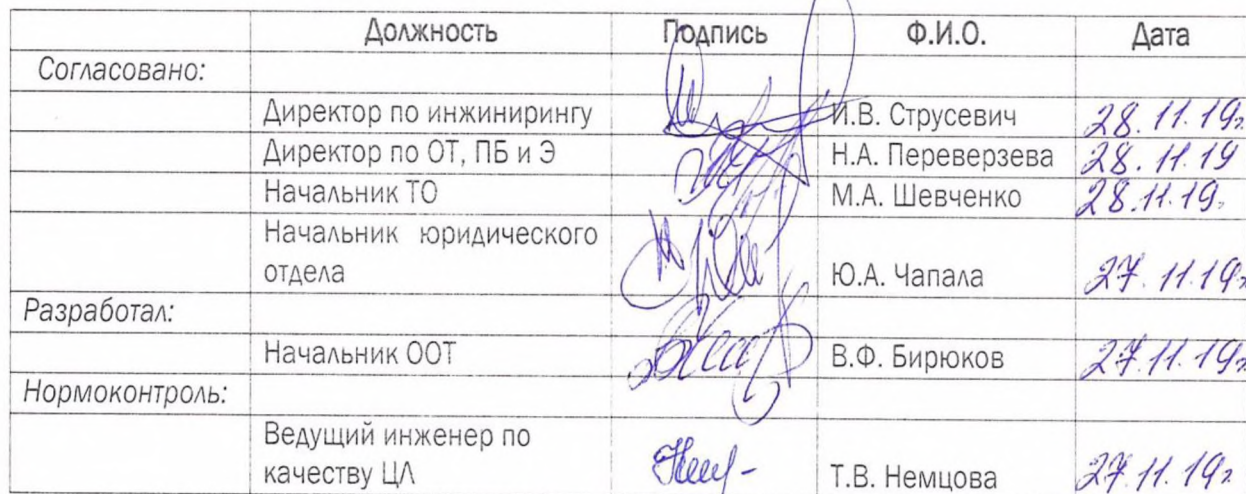 Должность Подпись Ф.И.О. Дата
Согласовано:
Директор по инжинирингу И.В. Струсевич 28.11.19г
Директор по ОТ, ПБ и Э Н.А. Переверзева 28.11.19
Начальник ТО М.А. Шевченко 28.11.19.
Начальник юридического
отдела Ю.А. Чапала 27.11.19г
Разработал:
Начальник ООТ В.Ф. Бирюков 27.11.19г
Нормоконтроль:
Ведущий инженер по
качеству ЦЛ Т.В. Немцова 27.11.19г